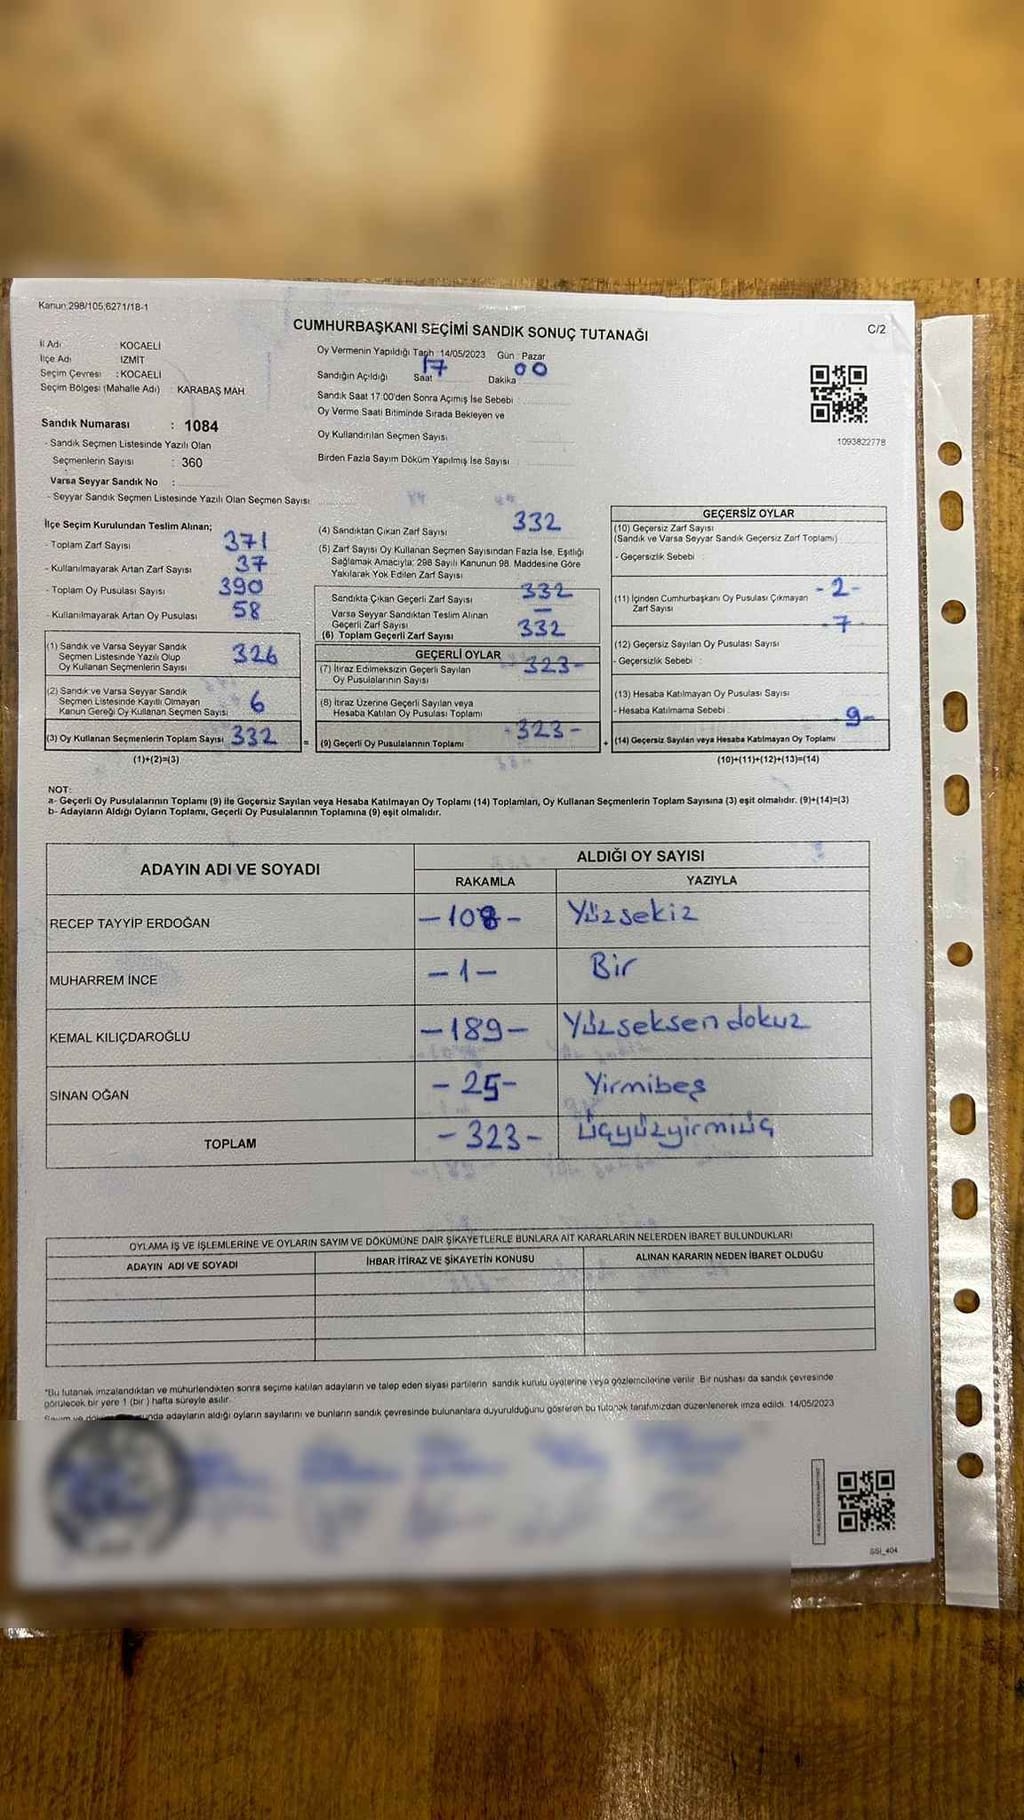 Kanun 298/105,6271/18-1
CUMHURBAŞKANI SEÇİMİ SANDIK SONUÇ TUTANAĞI
C/2
İl Adı KOCAELİ
İlçe Adı İZMİT
Seçim Çevresi : KOCAELİ
Seçim Bölgesi (Mahalle Adı) : KARABAŞ MAH
Sandık Numarası : 1084
- Sandık Seçmen Listesinde Yazılı Olan
Seçmenlerin Sayısı : 360
Varsa Seyyar Sandık No :
- Seyyar Sandık Seçmen Listesinde Yazılı Olan Seçmen Sayısı
Oy Vermenin Yapıldığı Tarih : 14/05/2023 Gün : Pazar
Sandığın Açıldığı Saat 17 Dakika 00
Sandık Saat 17:00'den Sonra Açımış İse Sebebi :
Oy Verme Saati Bitiminde Sırada Bekleyen ve
Oy Kullandırılan Seçmen Sayısı
Birden Fazla Sayım Döküm Yapılmış İse Sayısı
1093822778
İlçe Seçim Kurulundan Teslim Alınan;
- Toplam Zarf Sayısı 371
- Kullanılmayarak Artan Zarf Sayısı 37
- Toplam Oy Pusulası Sayısı 390
- Kullanılmayarak Artan Oy Pusulası 58
(1) Sandık ve Varsa Seyyar Sandık
Seçmen Listesinde Yazılı Olup
Oy Kullanan Seçmenlerin Sayısı 326
(2) Sandık ve Varsa Seyyar Sandık
Seçmen Listesinde Kayıtlı Olmayan
Kanun Gereği Oy Kullanan Seçmen Sayısı 6
(3) Oy Kullanan Seçmenlerin Toplam Sayısı 332
(1)+(2)=(3)
(4) Sandıktan Çıkan Zarf Sayısı 332
(5) Zarf Sayısı Oy Kullanan Seçmen Sayısından Fazla İse, Eşitliği
Sağlamak Amacıyla; 298 Sayılı Kanunun 98. Maddesine Göre
Yakılarak Yok Edilen Zarf Sayısı
Sandıkta Çıkan Geçerli Zarf Sayısı 332
Varsa Seyyar Sandıktan Teslim Alınan
Geçerli Zarf Sayısı –
(6) Toplam Geçerli Zarf Sayısı 332
GEÇERLİ OYLAR
(7) İtiraz Edilmeksizin Geçerli Sayılan
Oy Pusulalarının Sayısı - 323 -
(8) İtiraz Üzerine Geçerli Sayılan veya
Hesaba Katılan Oy Pusulası Toplamı
= (9) Geçerli Oy Pusulalarının Toplamı - 323 -
GEÇERSİZ OYLAR
(10) Geçersiz Zarf Sayısı
(Sandık ve Varsa Seyyar Sandık Geçersiz Zarf Toplamı)
- Geçersizlik Sebebi :
(11) İçinden Cumhurbaşkanı Oy Pusulası Çıkmayan
Zarf Sayısı - 2 -
(12) Geçersiz Sayılan Oy Pusulası Sayısı - 7 -
- Geçersizlik Sebebi :
(13) Hesaba Katılmayan Oy Pusulası Sayısı
- Hesaba Katılmama Sebebi :
+ (14) Geçersiz Sayılan veya Hesaba Katılmayan Oy Toplamı - 9 -
(10)+(11)+(12)+(13)=(14)
NOT:
a- Geçerli Oy Pusulalarının Toplamı (9) ile Geçersiz Sayılan veya Hesaba Katılmayan Oy Toplamı (14) Toplamları, Oy Kullanan Seçmenlerin Toplam Sayısına (3) eşit olmalıdır. (9)+(14)=(3)
b- Adayların Aldığı Oyların Toplamı, Geçerli Oy Pusulalarının Toplamına (9) eşit olmalıdır.
ADAYIN ADI VE SOYADI
ALDIĞI OY SAYISI
RAKAMLA YAZIYLA
RECEP TAYYİP ERDOĞAN - 108 - Yüzsekiz
MUHARREM İNCE - 1 - Bir
KEMAL KILIÇDAROĞLU - 189 - Yüzseksendokuz
SİNAN OĞAN - 25 - Yirmibeş
TOPLAM - 323 - Üçyüzyirmiüç
OYLAMA İŞ VE İŞLEMLERİNE VE OYLARIN SAYIM VE DÖKÜMÜNE DAİR ŞİKAYETLERLE BUNLARA AİT KARARLARIN NELERDEN İBARET BULUNDUKLARI
ADAYIN ADI VE SOYADI İHBAR İTİRAZ VE ŞİKAYETİN KONUSU ALINAN KARARIN NEDEN İBARET OLDUĞU
*Bu tutanak imzalandıktan ve mühürlendikten sonra seçime katılan adayların ve talep eden siyasi partilerin sandık kurulu üyelerine veya gözlemcilerine verilir. Bir nüshası da sandık çevresinde
görülecek bir yere 1 (bir) hafta süreyle asılır.
Sayım ve adayların aldığı oyların sayılarını ve bunların sandık çevresinde bulunanlara duyurulduğunu gösteren bu tutanak tarafımızdan düzenlenerek imza edildi. 14/05/2023
SSI_404